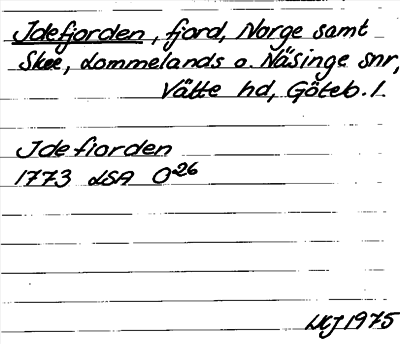 Idefjorden, fjord, Norge samt
Skee, Lommelands o. Näsinge snr,
Vätte hd, Göteb. l.
Idefiorden
1773 LSA O26
LKJ 1975